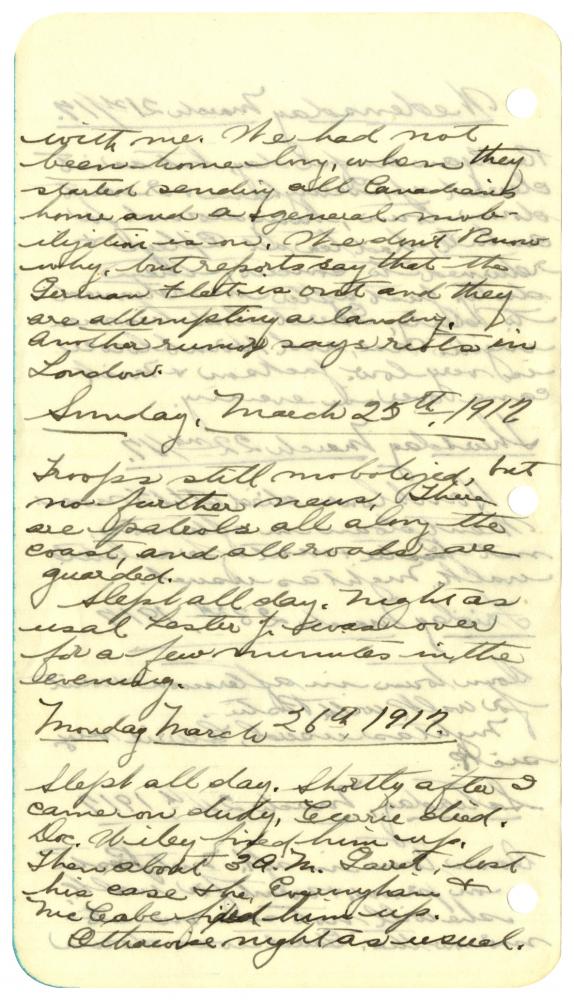 with me. We had not
been home long, when they
started sending all Canadians
home and a general mob-
ilization is on. We don't know
why, but reports say that the
German Fleet is out and they
are attempting a landing.
Another rumor says riots in
London.
Sunday, March 25th, 1917
Troops still mobolized, but
no further news. There
are patrols all along the
coast, and all roads are
guarded.
Slept all day. Night as
usal Lester J. was over
for a few minutes in the
evening.
Monday March 26th 1917.
Slept all day. Shortly after I
came on duty, Currie died.
Doc. Wiley fixed him up.
Then about 3 A.M. lost
his case & he, Everingham &
McCabe fixed him up.
Otherwise night as usual.